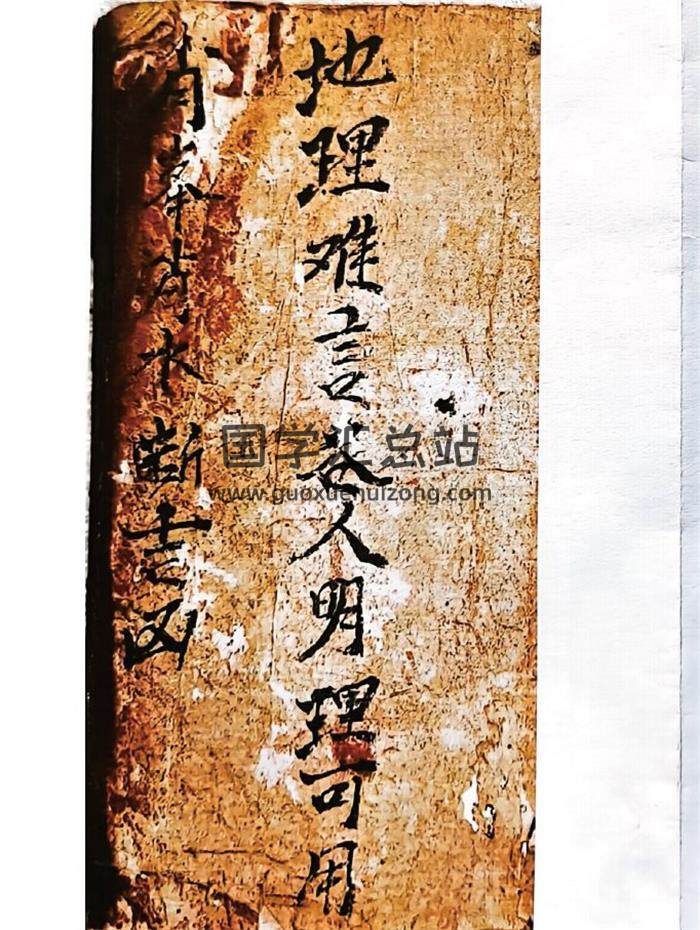 地理难言人明理可用
水断吉凶
国学汇总站
www.guoxuehuizong.com